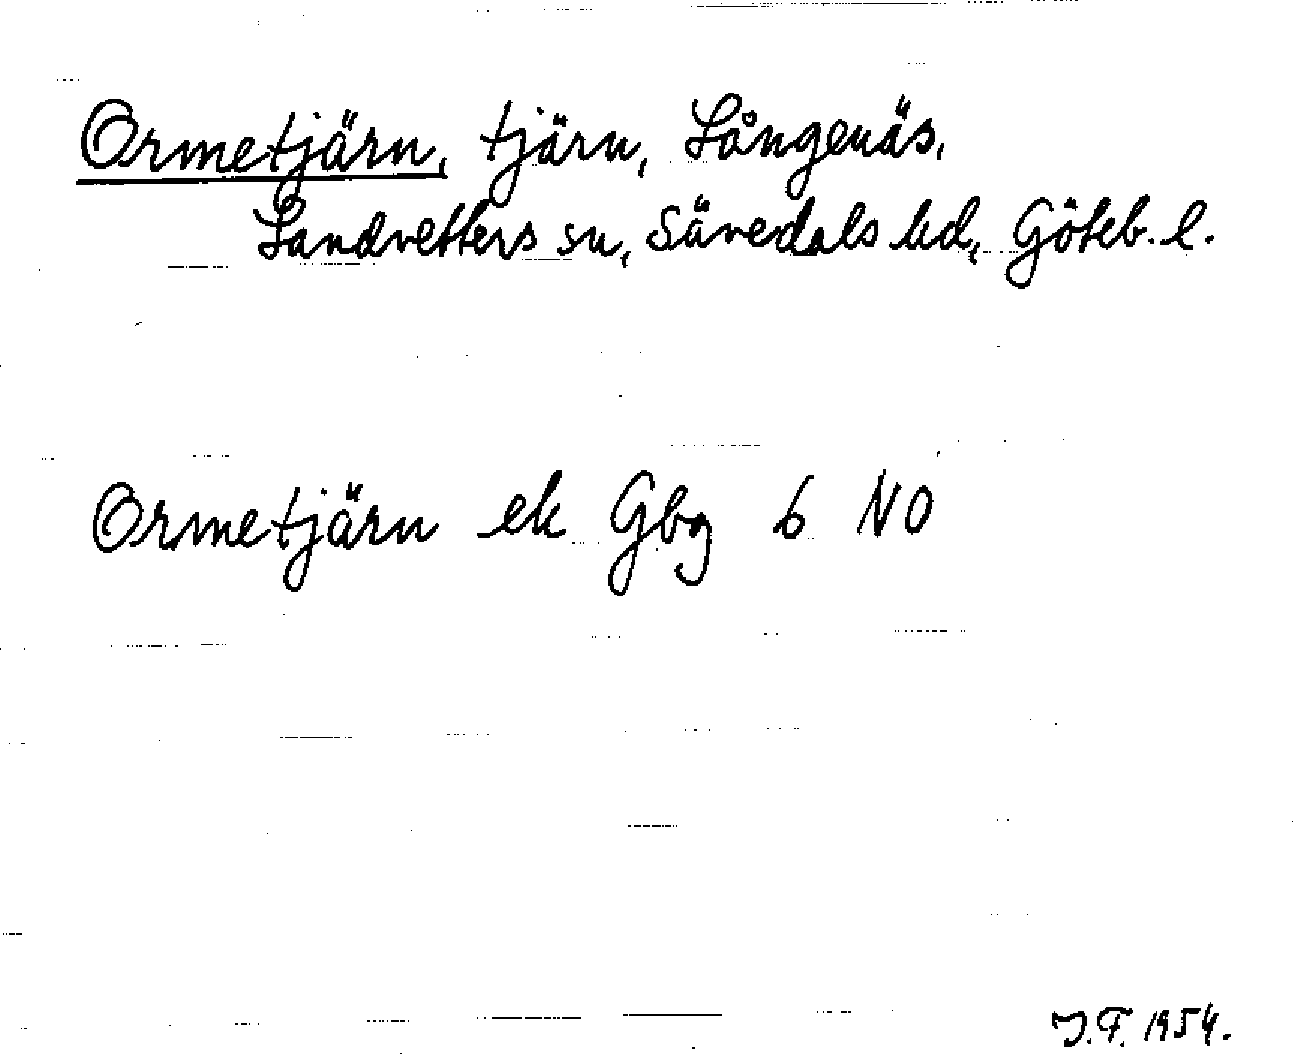 Ormetjärn, tjärn, Långenäs,
Landvetters sn, Sävedals hd, Göteb. l.
Ormetjärn ek Gbg 6 NO
J.F. 1954.